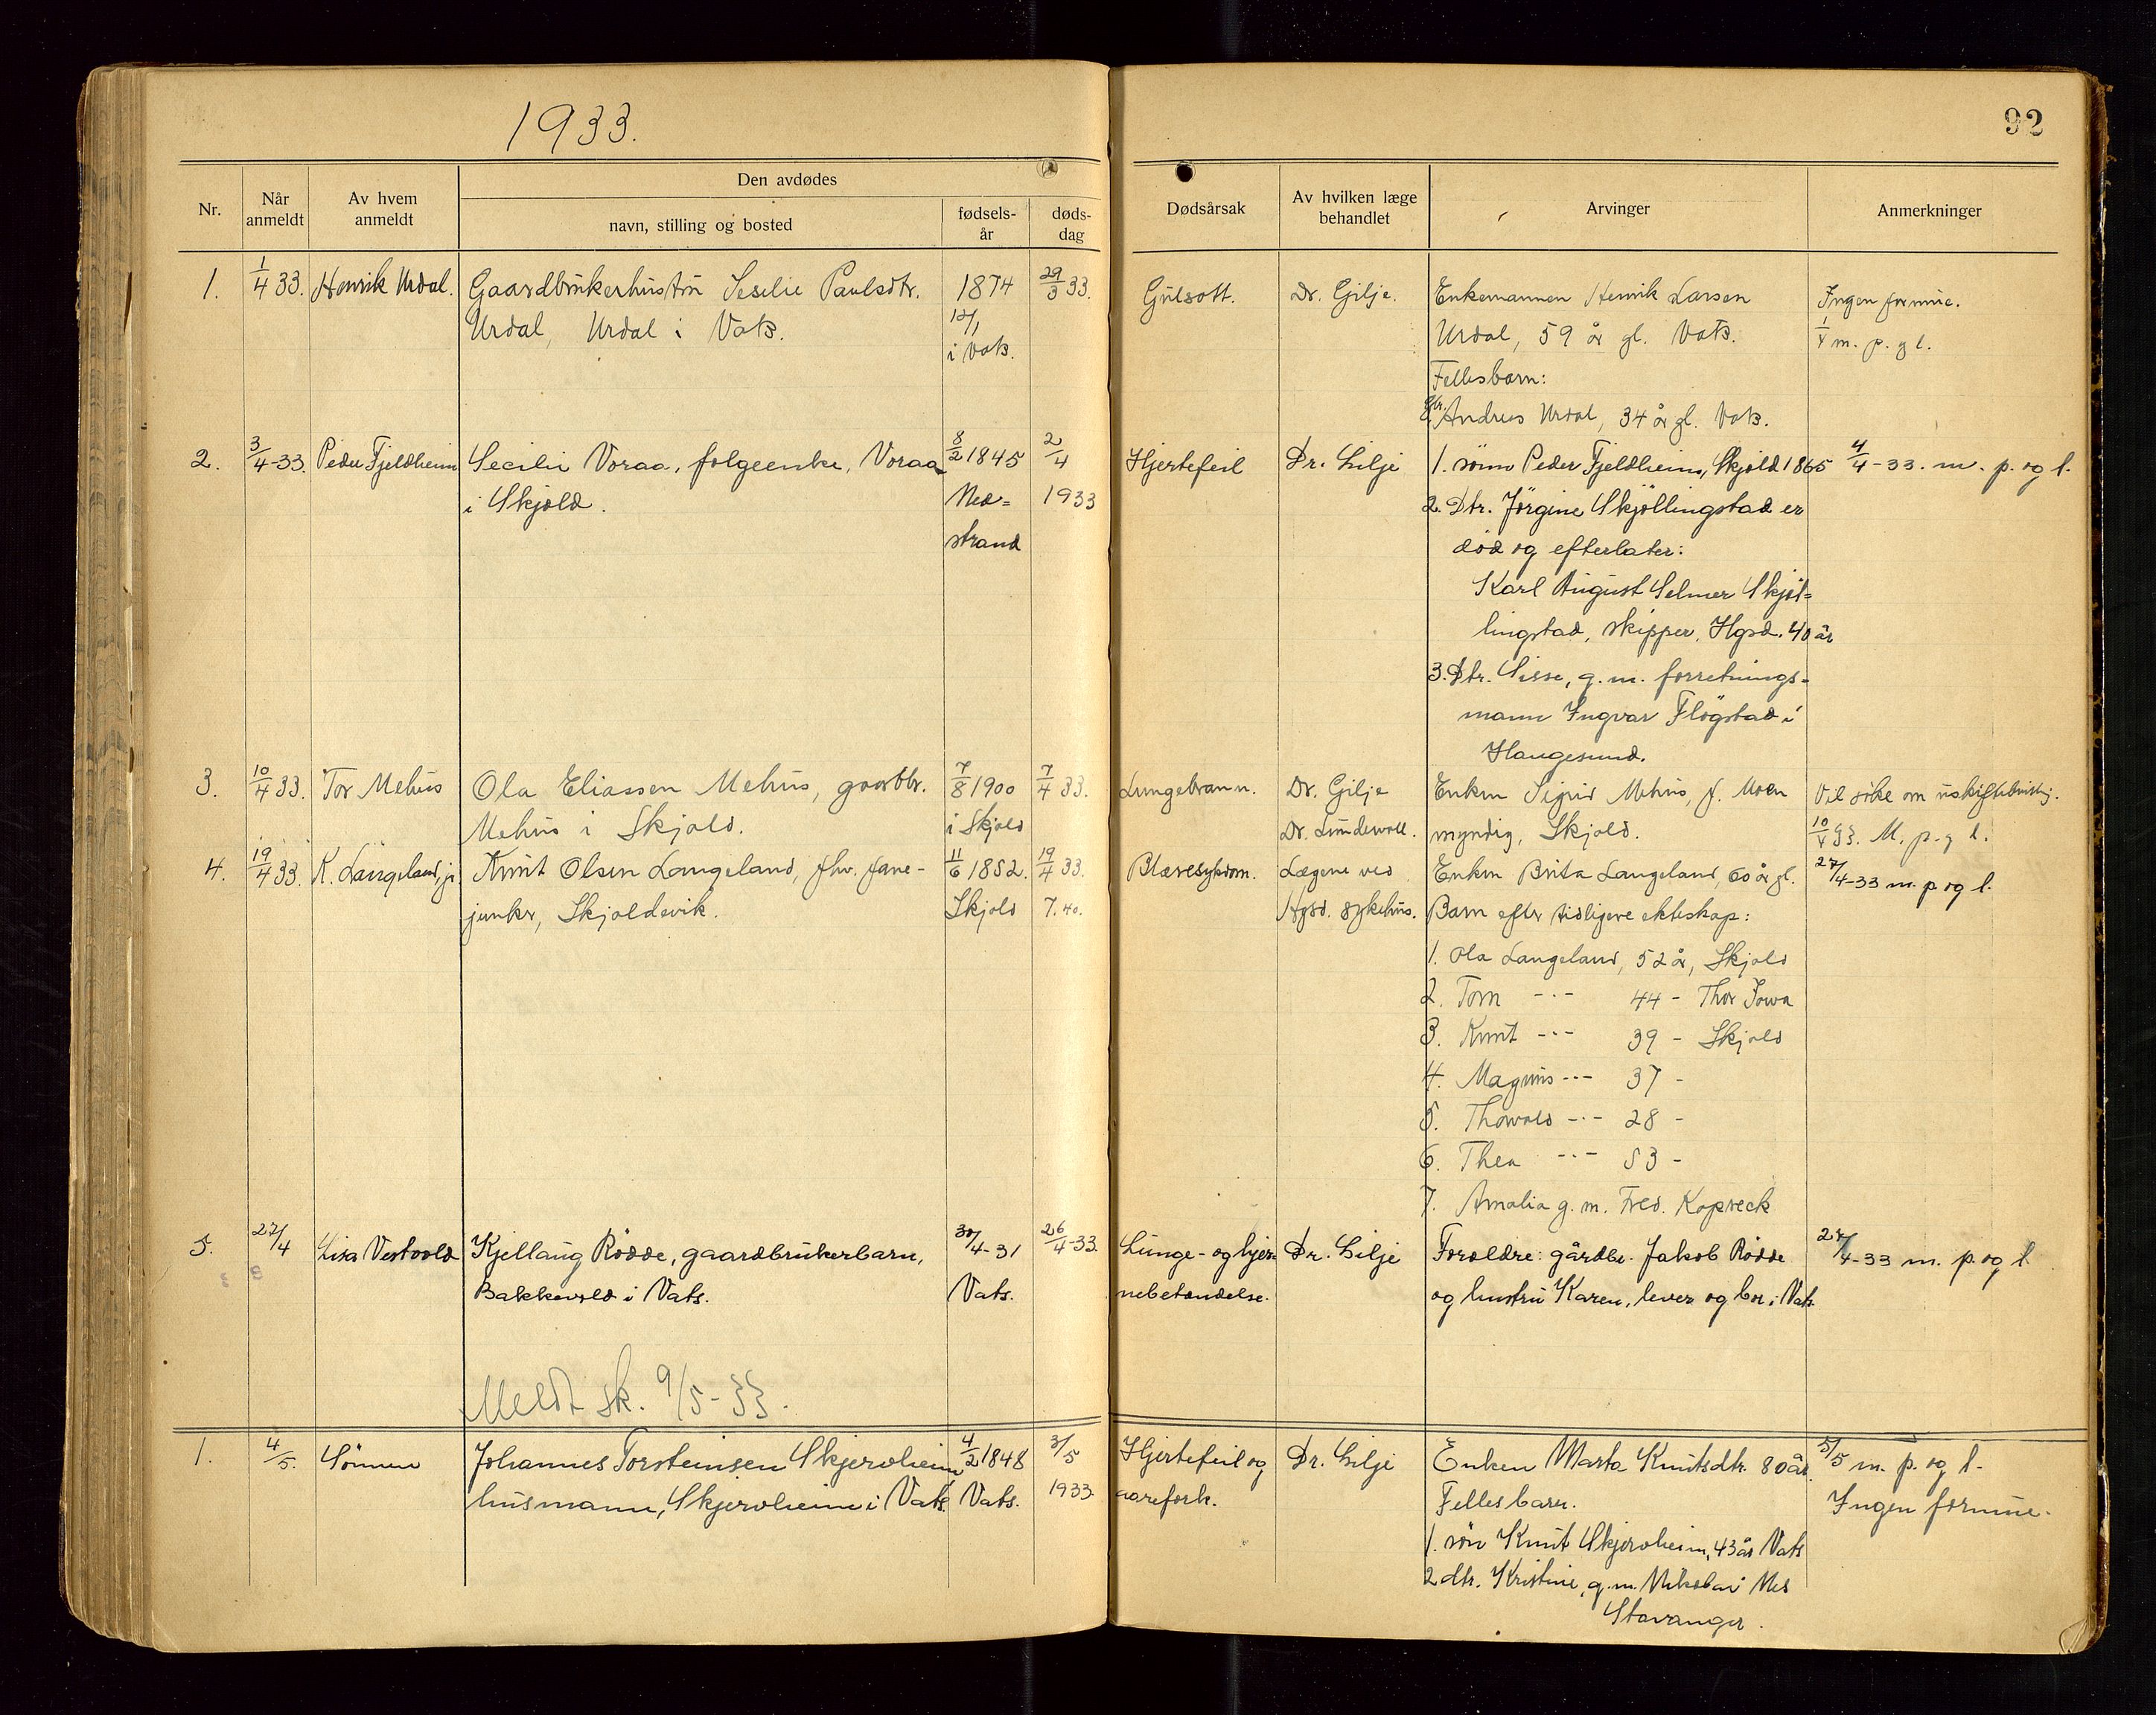 1933.
92
Nr.
Når anmeldt
Av hvem anmeldt
Den avdødes
navn, stilling og bosted
fødsels-år
døds-dag
Dødsårsak
Av hvilken læge behandlet
Arvinger
Anmerkninger
1. 1/4 33. Henrik Urdal. Gaardbrukerhustru Seselie Paulsdtr. 1874 29/3 33. Gulsott. Dr. Gilje. Enkemannen Henrik Larsen Ingen formue.
Urdal, Urdal i Vats. 12/1 Urdal, 59 år gl. Vats. 1/4 m. p. g l.
i Vats. Fellesbarn:
Andreas Urdal, 34 år gl. Vats.
2. 3/4-33. Peder Fjeldheim Secilie Voraa, folgeenke, Voraa 8/2 1845 2/4 Hjertefeil Dr. Gilje 1. sönn Peder Fjeldheim, Skjold 1865 4/4-33. m. p. og l.
i Skjold. Ned= 1933 2. Dtr. Jörgine Skjöllingstad er
strand död og efterlater:
Karl August Selmer Skjöl=
lingstad, skipper, Hgsd. 40 år
3. Dtr. Sisse, g. m. forretnings-
mann Ingvar Flögstad i
Haugesund.
3. 10/4 33. Tor Mehus Ola Eliassen Mehus, gaardbr. 7/8 1900 7/4 33. Lungebrann. Dr. Gilje Enken Sigrid Mehus, f. Moen Vil söke om
Mehus i Skjold. i Skjold Dr. Lundevall. myndig, Skjold. 10/4 33. M. p. g l.
4. 19/4 33. K. Langeland, jr. Knut Olsen Langeland, fhv. fane- 11/6 1852. 19/4 33. Blæresykdom. Lægene ved Enken Brita Langeland, 60 år gl. 27/4-33 m. p og l.
junker, Skjoldevik. Skjold 7.40. Hgsd. sykehus. Barn efter tidligere ekteskap:
1. Ola Langeland, 52 år, Skjold
2. Torn -·- 44 - Thor Iowa
3. Knut -·- 39 - Skjold
4. Magnus -·- 37 -
5. Thorvald -·- 28 -
6. Thea -·- 53 -
7. Amalia g. m. Fred. Kopreck
5. 27/4 Lisa Vestvold Kjellaug Rödde, gaardbrukerbarn, 30/4-31 26/4-33. Lunge- og hjer= Dr. Gilje Foreldre: gårdbr. Jakob Rödde 27/4-33 m. p. og l.
Bakkevold i Vats. Vats. nebetendelse. og hustru Karen, lever og bor i Vats.
Meldt sk. 9/5-33.
1. 4/5. Sönnen Johannes Torsteinsen Skjervheim 4/2 1848 3/5 Hjertefeil og Dr. Gilje Enken Marta Knutsdtr. 80 år. 5/5 m. p. og l.
husmann, Skjervheim i Vats. Vats. 1933. aareforк. Felles barn. Ingen formue.
1. sön Knut Skjervheim, 43 år Vats
2 dtr. Kristine, g. m. Nikolai Nes
Stavanger.